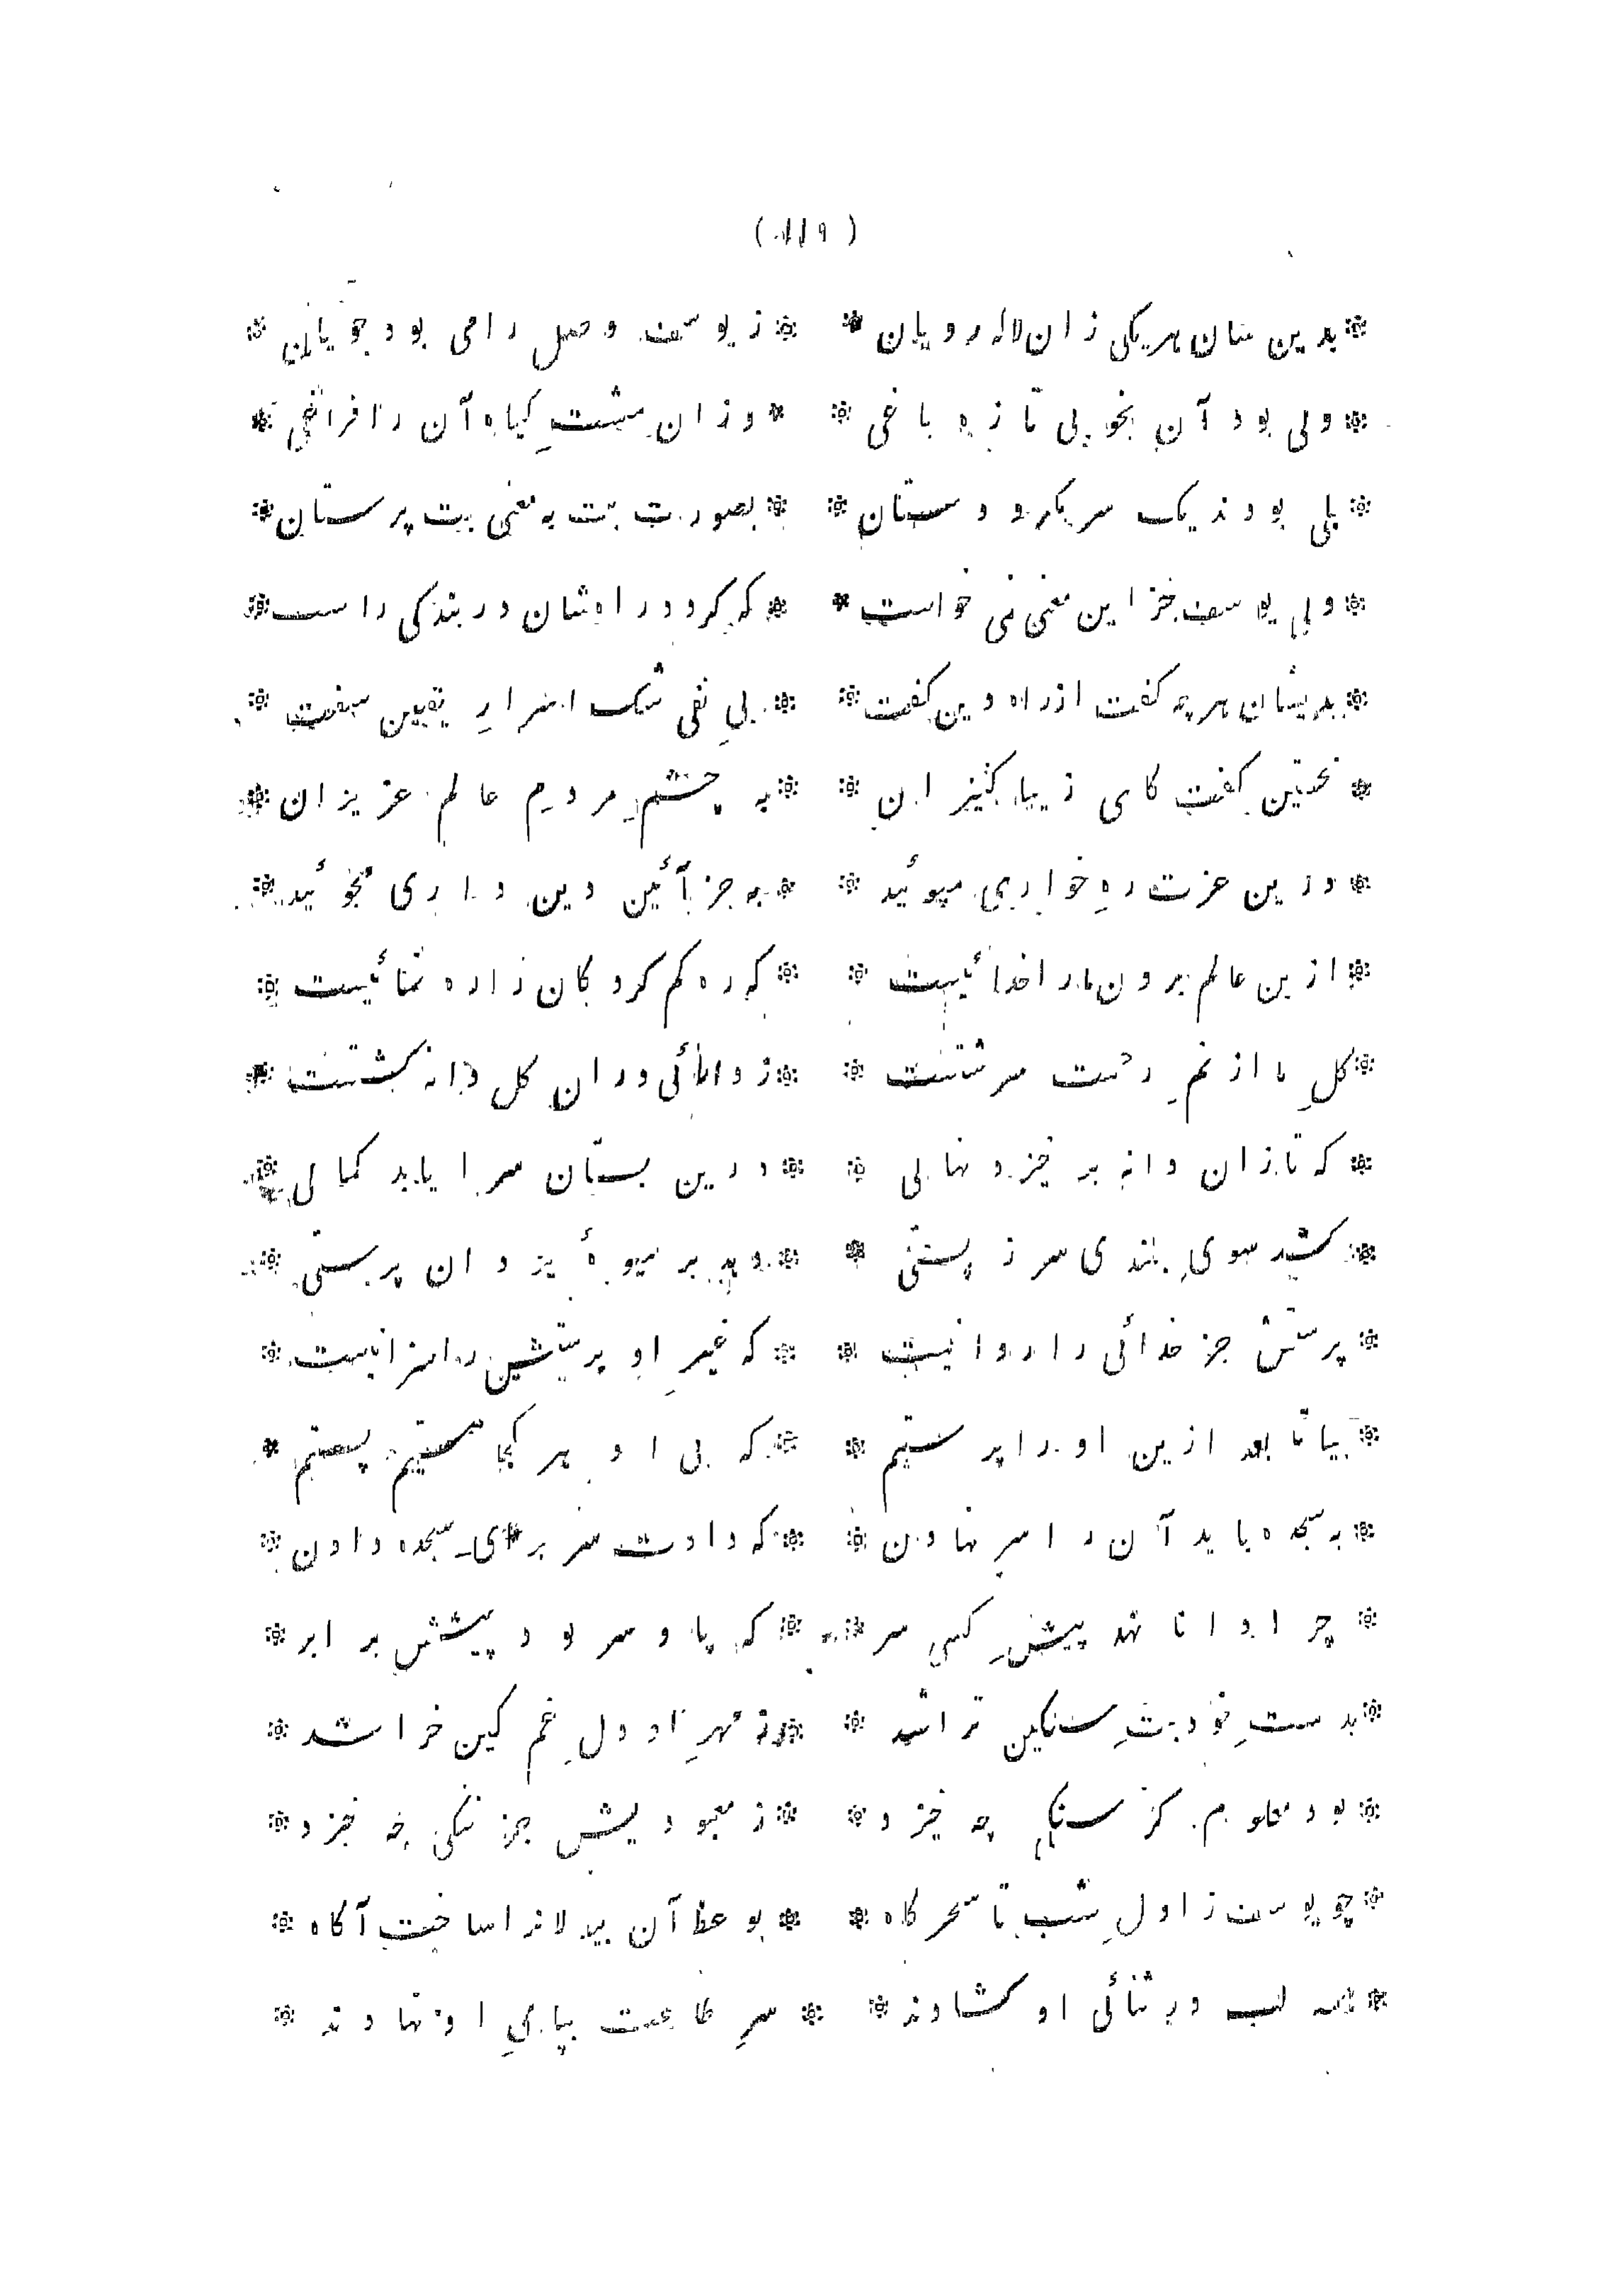 ( ۱۱۹ )
* بدین سان هریکی زان لاله رویان * * ز یوسف وصل را می بود جویان *
* ولی بود آن بخوبی تازه باغی * * وزان مشتِ کیاه آن را فراغی *
* بلی بودند یک سر مکر و دستان * * بصورت بت به معنی بت پرستان *
* ولی یوسف جز این معنی نمی خواست * * که کردد راهشان در بندکی راست *
* بدیشان هر چه کفت از راه دین کفت * * پیِ نفی شک اسرارِ یقین سفت *
* نخستین کفت کای زیبا کنیزان * * به چشمِ مردم عالم عزیزان *
* درین عزت رهِ خواری مپوئید * * به جز آئین دین داری مجوئید *
* ازین عالم برون مار اخدائیست * * که ره کم کرد کان زا ره نمائیست *
* کلِ ما از نمِ رحمت سرشتست * * ز دانائی دران کل دانه کشتست *
* که تا زان دانه بر خیزد نهالی * * درین بستان سرا یابد کمالی *
* کشد سویِ بلندی سر ز پستی * * دهد بر میوهٔ یزدان پرستی *
* پرستش جز خدائی را روا نیست * * که غیرِ او پرستش را سزا نیست *
* بیا تا بعد ازین او را پرستیم * * که بی او هر کجا هستیم پستیم *
* به سجده باید آن را سر نهادن * * که دادت سر برای سجده دادن *
* چرا دانا نهد پیشِ کسی سر * * که پا و سر بود پیشش برابر *
* بدستِ خود بتِ سنکین تراشد * * ز مهرِ او دلِ غم کین خراشد *
* بود معلوم کز سنکی چه خیزد * * ز معبودیش جز ننکی چه خیزد *
* چو یوسف ز اولِ شب تا سحرکاه * * بوعظ آن بیدلانرا ساخت آکاه *
* همه لب در ثنائی او کشادند * * سرِ طاعت بپایِ او نهادند *